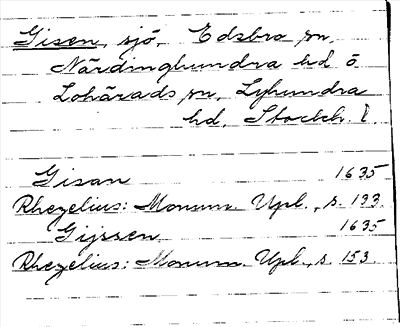 Gisen, sjö, Edsbro sn,
Närdinghundra hd o.
Lohärads sn, Lyhundra
hd, Stockh. l.
Gisan 1635
Rhezelius: Monum. Upl., s. 193.
Gijssen 1635
Rhezelius: Monum. Upl., s. 153.